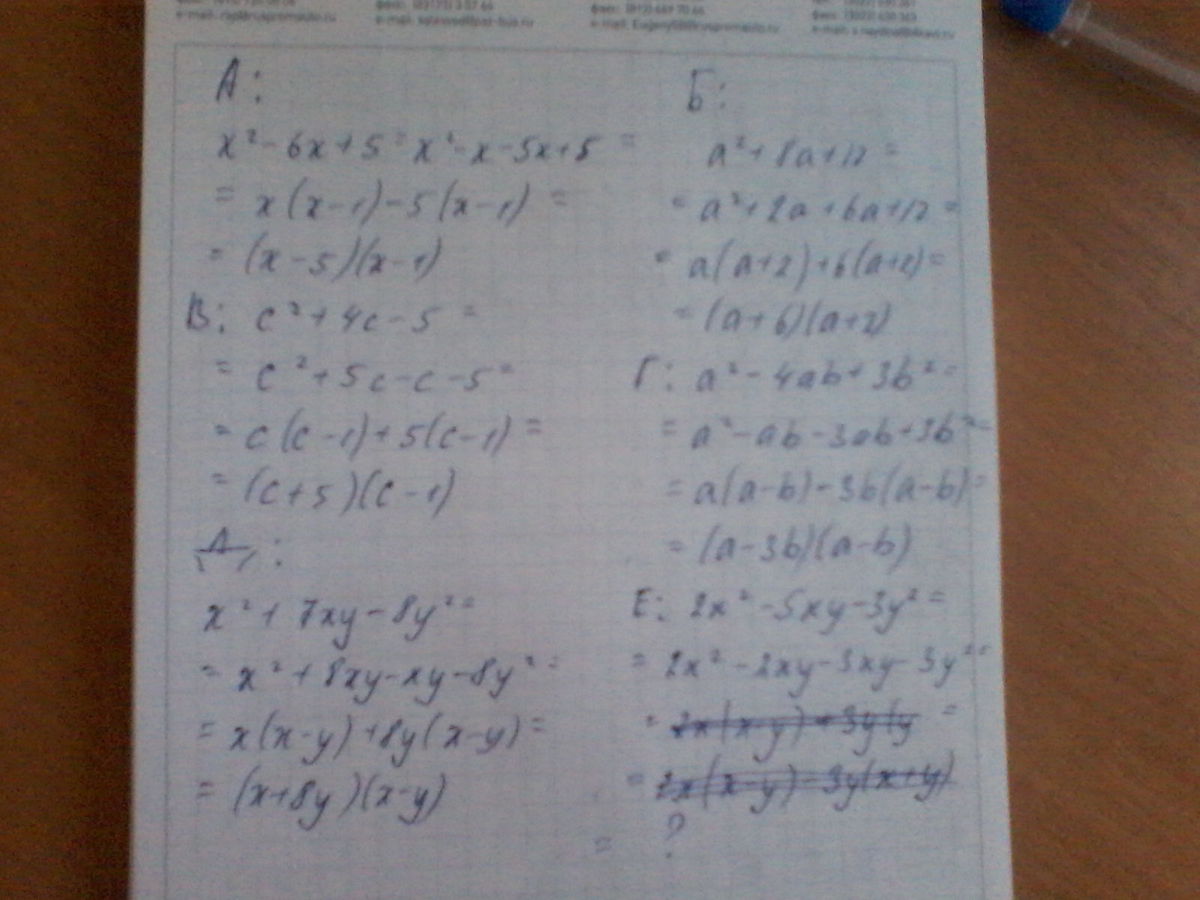 А:
x² - 6x + 5 = x² - x - 5x + 5 =
= x(x - 1) - 5(x - 1) =
= (x - 5)(x - 1)
В: c² + 4c - 5 =
= c² + 5c - c - 5 =
= c(c - 1) + 5(c - 1) =
= (c + 5)(c - 1)
Д:
x² + 7xy - 8y² =
= x² + 8xy - xy - 8y² =
= x(x - y) + 8y(x - y) =
= (x + 8y)(x - y)
Б:
a² + 8a + 12 =
= a² + 2a + 6a + 12 =
= a(a + 2) + 6(a + 2) =
= (a + 6)(a + 2)
Г: a² - 4ab + 3b² =
= a² - ab - 3ab + 3b² =
= a(a - b) - 3b(a - b) =
= (a - 3b)(a - b)
Е: 2x² - 5xy - 3y² =
= 2x² - 2xy - 3xy - 3y² =
= 2x(x - y) + 3y(y =
= 2x(x - y) - 3y(x + y)
= ?